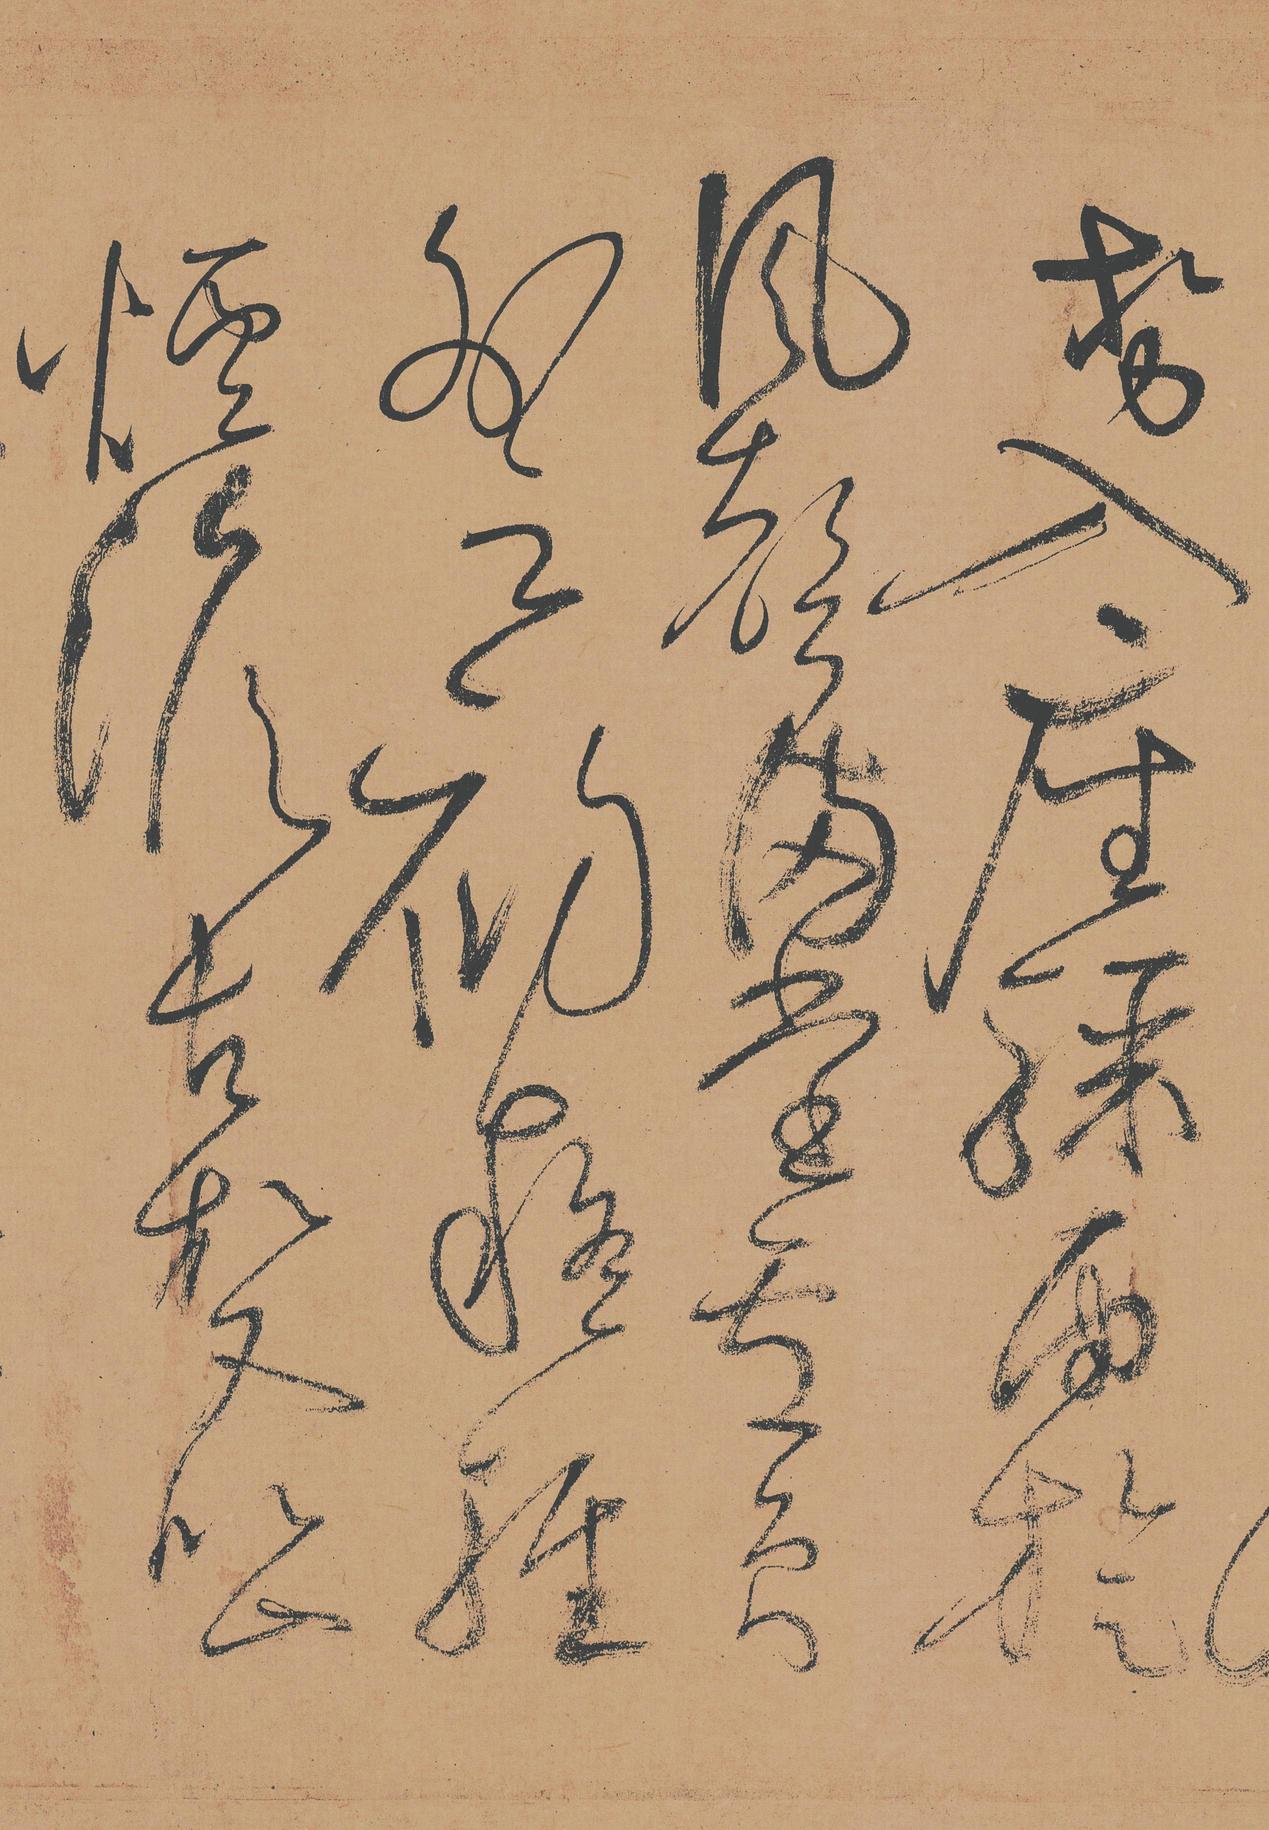 勢入座驟雨旋
風聲滿堂盧員
外云初疑輕
煙澹古松又似山